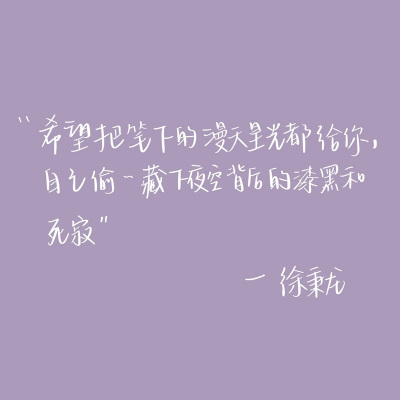 “希望把笔下的漫天星光都给你，
自己偷偷藏下夜空背后的漆黑和
死寂”
— 徐秉龙